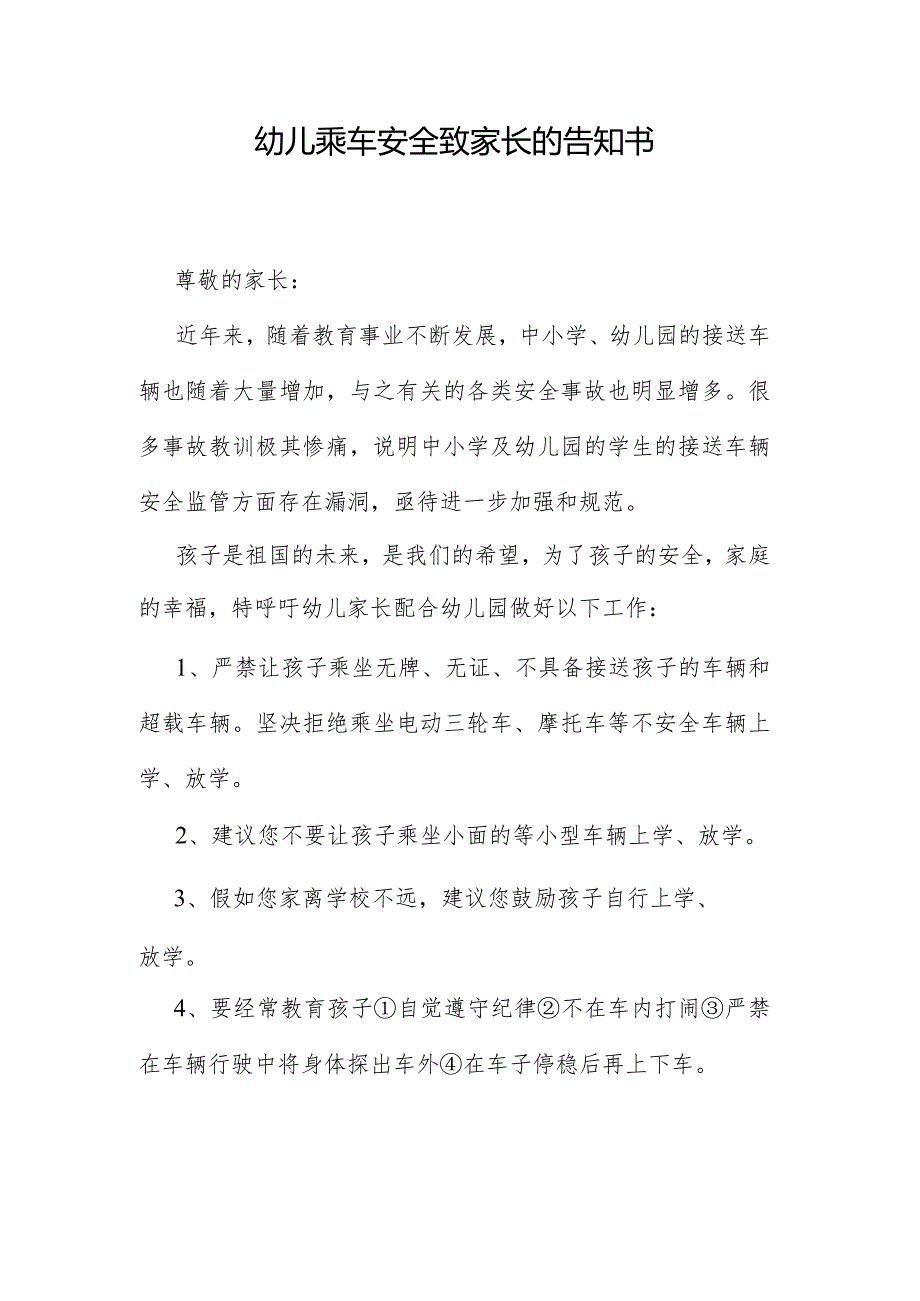 幼儿乘车安全致家长的告知书
尊敬的家长：
近年来，随着教育事业不断发展，中小学、幼儿园的接送车
辆也随着大量增加，与之有关的各类安全事故也明显增多。很
多事故教训极其惨痛，说明中小学及幼儿园的学生的接送车辆
安全监管方面存在漏洞，亟待进一步加强和规范。
孩子是祖国的未来，是我们的希望，为了孩子的安全，家庭
的幸福，特呼吁幼儿家长配合幼儿园做好以下工作：
1、严禁让孩子乘坐无牌、无证、不具备接送孩子的车辆和
超载车辆。坚决拒绝乘坐电动三轮车、摩托车等不安全车辆上
学、放学。
2、建议您不要让孩子乘坐小面的等小型车辆上学、放学。
3、假如您家离学校不远，建议您鼓励孩子自行上学、
放学。
4、要经常教育孩子①自觉遵守纪律②不在车内打闹③严禁
在车辆行驶中将身体探出车外④在车子停稳后再上下车。